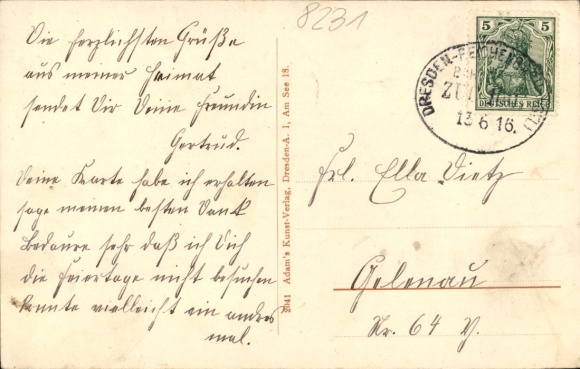 8231
Die herzlichsten Grüße
aus meiner Heimat
sendet Dir Deine Freundin
Gertrud.
Deine Karte habe ich erhalten
sage meinen besten Dank
Bedaure sehr daß ich Dich
die Feiertage nicht besuchen
konnte vielleicht ein andres
mal.
2941 Adam's Kunst-Verlag, Dresden-A. 1, Am See 18.
5 5
DEUTSCHES REICH
DRESDEN-REICHENB
ZUG
13 6 16.
Frl. Ella Dietz
Gelenau
Nr. 64 V.